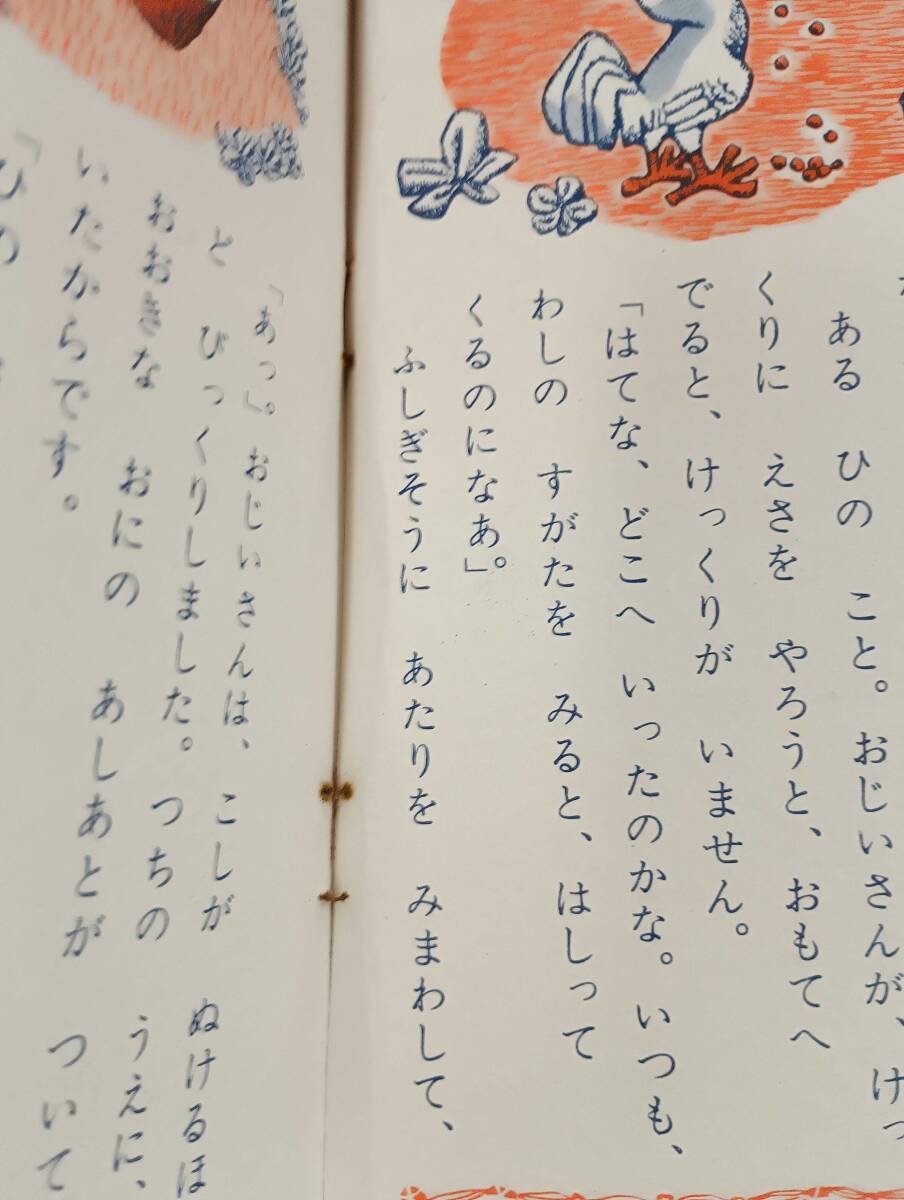 ある ひの こと。おじいさんが、けっ
くりに えさを やろうと、おもてへ
でると、けっくりが いません。
「はてな、どこへ いったのかな。いつも、
わしの すがたを みると、はしって
くるのになあ」。
ふしぎそうに あたりを みまわして、
「あっ」。おじいさんは、こしが ぬけるほ
と びっくりしました。つちの うえに、
おおきな おにの あしあとが ついて
いたからです。